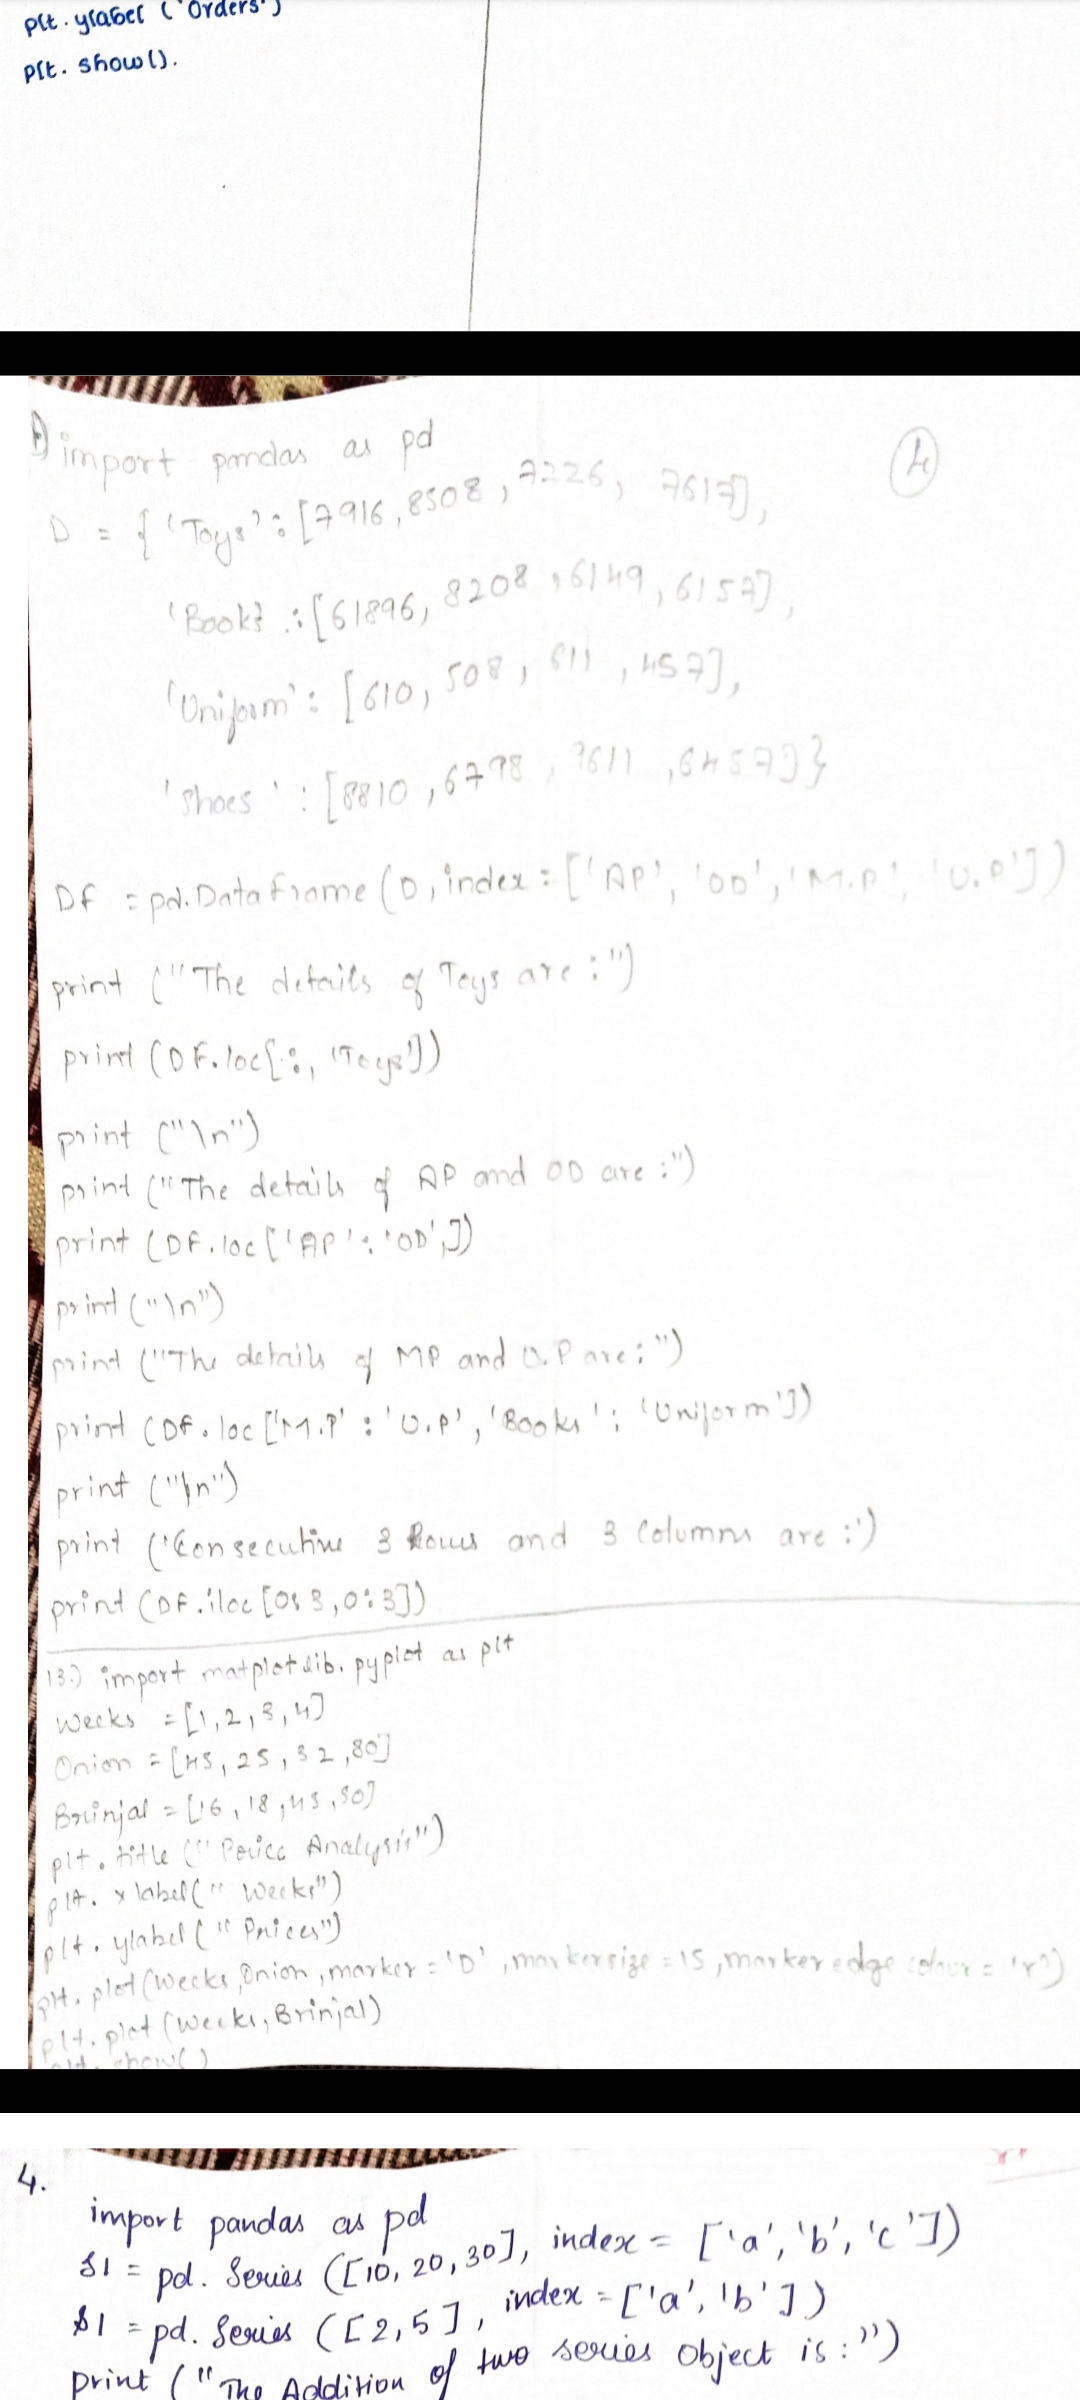 plt.ylabel ('Orders')
plt. show().
import pandas as pd
D = { 'Toys' : [7916, 8508, 7226, 7617],
'Books' : [61896, 8208, 6149, 6157],
'Uniform' : [610, 508, 611, 457],
'Shoes' : [8810, 6798, 9611, 6457]}
DF = pd.DataFrame (D, index = ['AP', 'OD', 'M.P', 'U.P'])
print ("The details of Toys are :")
print (DF.loc[:, 'Toys'])
print ("\n")
print ("The details of AP and OD are :")
print (DF.loc['AP' : 'OD',])
print ("\n")
print ("The details of MP and U.P are :")
print (DF.loc ['M.P' : 'U.P', 'Books' : 'Uniform'])
print ("\n")
print ('Consecutive 3 Rows and 3 Columns are :')
print (DF.iloc [0:3, 0:3])
13.) import matplotlib.pyplot as plt
Weeks = [1, 2, 3, 4]
Onion = [45, 25, 32, 80]
Brinjal = [16, 18, 45, 50]
plt. title ("Price Analysis")
plt. xlabel (" Weeks")
plt. ylabel (" Prices")
plt. plot (Weeks, Onion, marker = 'D', markersize = 15, markeredge colour = 'r')
plt. plot (Weeks, Brinjal)
plt. show()
4.
import pandas as pd
S1 = pd. Series ([10, 20, 30], index = ['a', 'b', 'c'])
S1 = pd. Series ([2, 5], index = ['a', 'b'])
print ("The Addition of two series object is :")